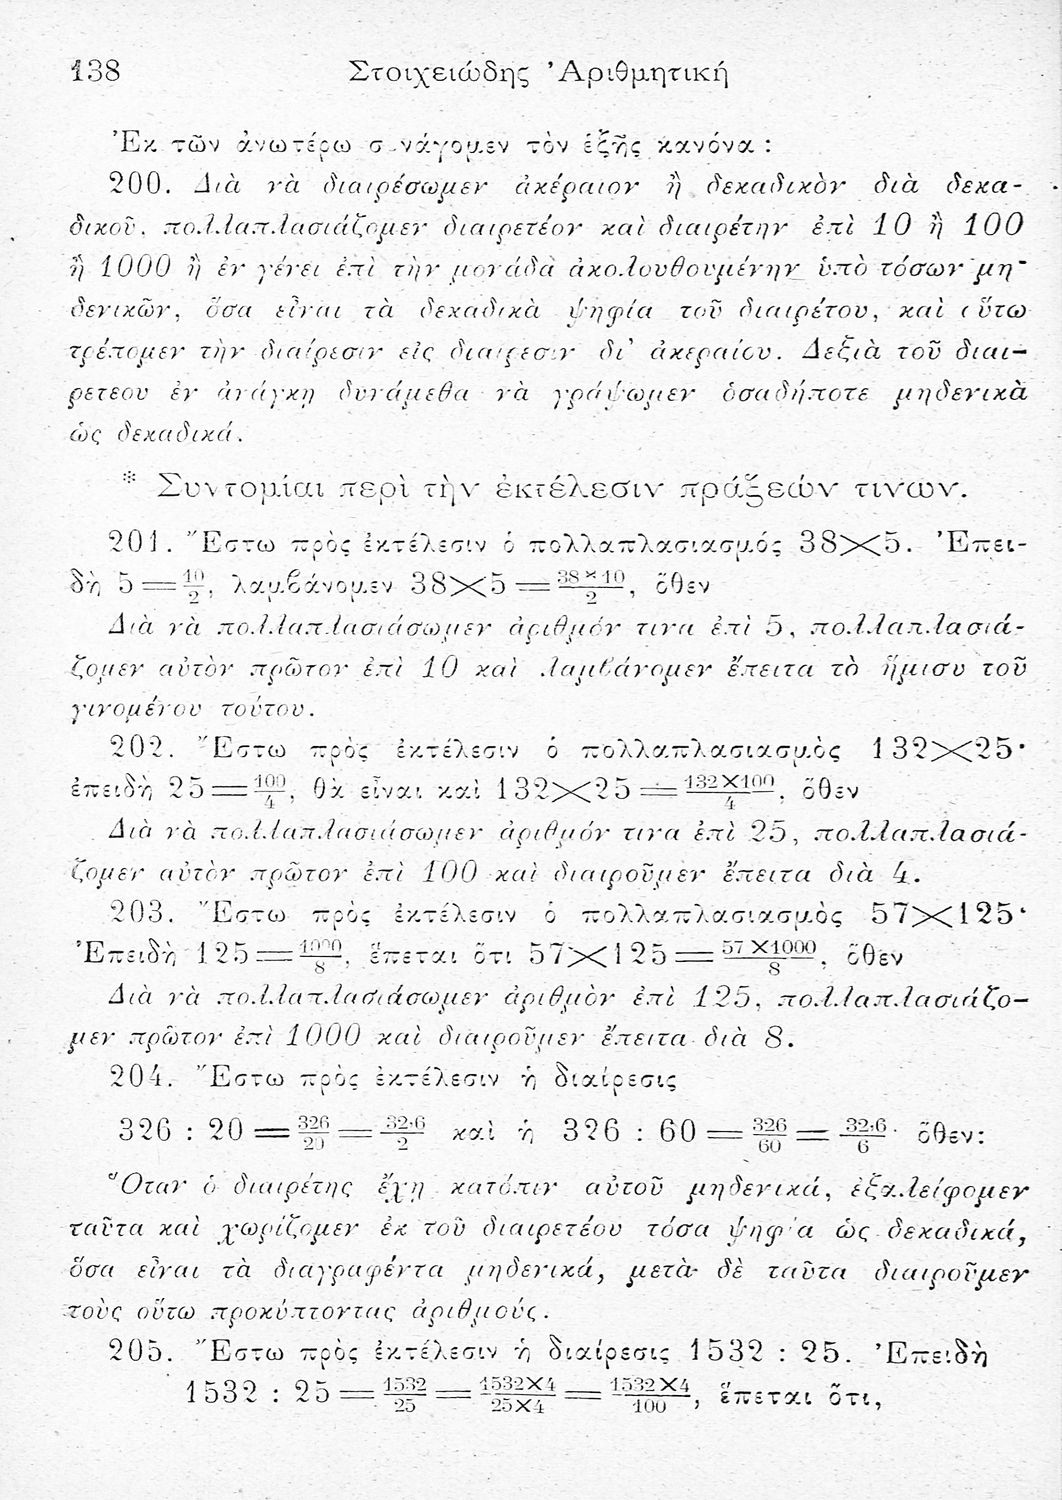 138 Στοιχειώδης Ἀριθμητική
Ἐκ τῶν ἀνωτέρω συνάγομεν τὸν ἑξῆς κανόνα :
200. Διὰ νὰ διαιρέσωμεν ἀκέραιον ἢ δεκαδικὸν διὰ δεκα-
δικοῦ. πολλαπλασιάζομεν διαιρετέον καὶ διαιρέτην ἐπὶ 10 ἢ 100
ἢ 1000 ἢ ἐν γένει ἐπὶ τὴν μονάδα ἀκολουθουμένην ὑπὸ τόσων μη-
δενικῶν, ὅσα εἶναι τὰ δεκαδικὰ ψηφία τοῦ διαιρέτου, καὶ οὕτω
τρέπομεν τὴν διαίρεσιν εἰς διαίρεσιν δι' ἀκεραίου. Δεξιὰ τοῦ διαι-
ρετεου ἐν ἀνάγκῃ δυνάμεθα νὰ γράψωμεν ὁσαδήποτε μηδενικὰ
ὡς δεκαδικά.
* Συντομίαι περὶ τὴν ἐκτέλεσιν πράξεών τινων.
201. Ἔστω πρὸς ἐκτέλεσιν ὁ πολλαπλασιασμός 38×5. Ἐπει-
δὴ 5 = 10/2, λαμβάνομεν 38×5 = 38×10/2, ὅθεν
Διὰ νὰ πολλαπλασιάσωμεν ἀριθμόν τινα ἐπὶ 5, πολλαπλασιά-
ζομεν αὐτὸν πρῶτον ἐπὶ 10 καὶ λαμβάνομεν ἔπειτα τὸ ἥμισυ τοῦ
γινομένου τούτου.
202. Ἔστω πρὸς ἐκτέλεσιν ὁ πολλαπλασιασμὸς 132×25·
ἐπειδὴ 25 = 100/4, θὰ εἶναι καὶ 132×25 = 132×100/4, ὅθεν
Διὰ νὰ πολλαπλασιάσωμεν ἀριθμόν τινα ἐπὶ 25, πολλαπλασιά-
ζομεν αὐτὸν πρῶτον ἐπὶ 100 καὶ διαιροῦμεν ἔπειτα διὰ 4.
203. Ἔστω πρὸς ἐκτέλεσιν ὁ πολλαπλασιασμὸς 57×125·
Ἐπειδὴ 125 = 1000/8, ἕπεται ὅτι 57×125 = 57×1000/8, ὅθεν
Διὰ νὰ πολλαπλασιάσωμεν ἀριθμὸν ἐπὶ 125, πολλαπλασιάζο-
μεν πρῶτον ἐπὶ 1000 καὶ διαιροῦμεν ἔπειτα διὰ 8.
204. Ἔστω πρὸς ἐκτέλεσιν ἡ διαίρεσις
326 : 20 = 326/20 = 32,6/2 καὶ ἡ 326 : 60 = 326/60 = 32,6/6· ὅθεν:
Ὅταν ὁ διαιρέτης ἔχῃ κατόπιν αὐτοῦ μηδενικά, ἐξαλείφομεν
ταῦτα καὶ χωρίζομεν ἐκ τοῦ διαιρετέου τόσα ψηφία ὡς δεκαδικά,
ὅσα εἶναι τὰ διαγραφέντα μηδενικά, μετὰ δὲ ταῦτα διαιροῦμεν
τοὺς οὕτω προκύπτοντας ἀριθμούς.
205. Ἔστω πρὸς ἐκτέλεσιν ἡ διαίρεσις 1532 : 25. Ἐπειδὴ
1532 : 25 = 1532/25 = 1532×4/25×4 = 1532×4/100, ἕπεται ὅτι,